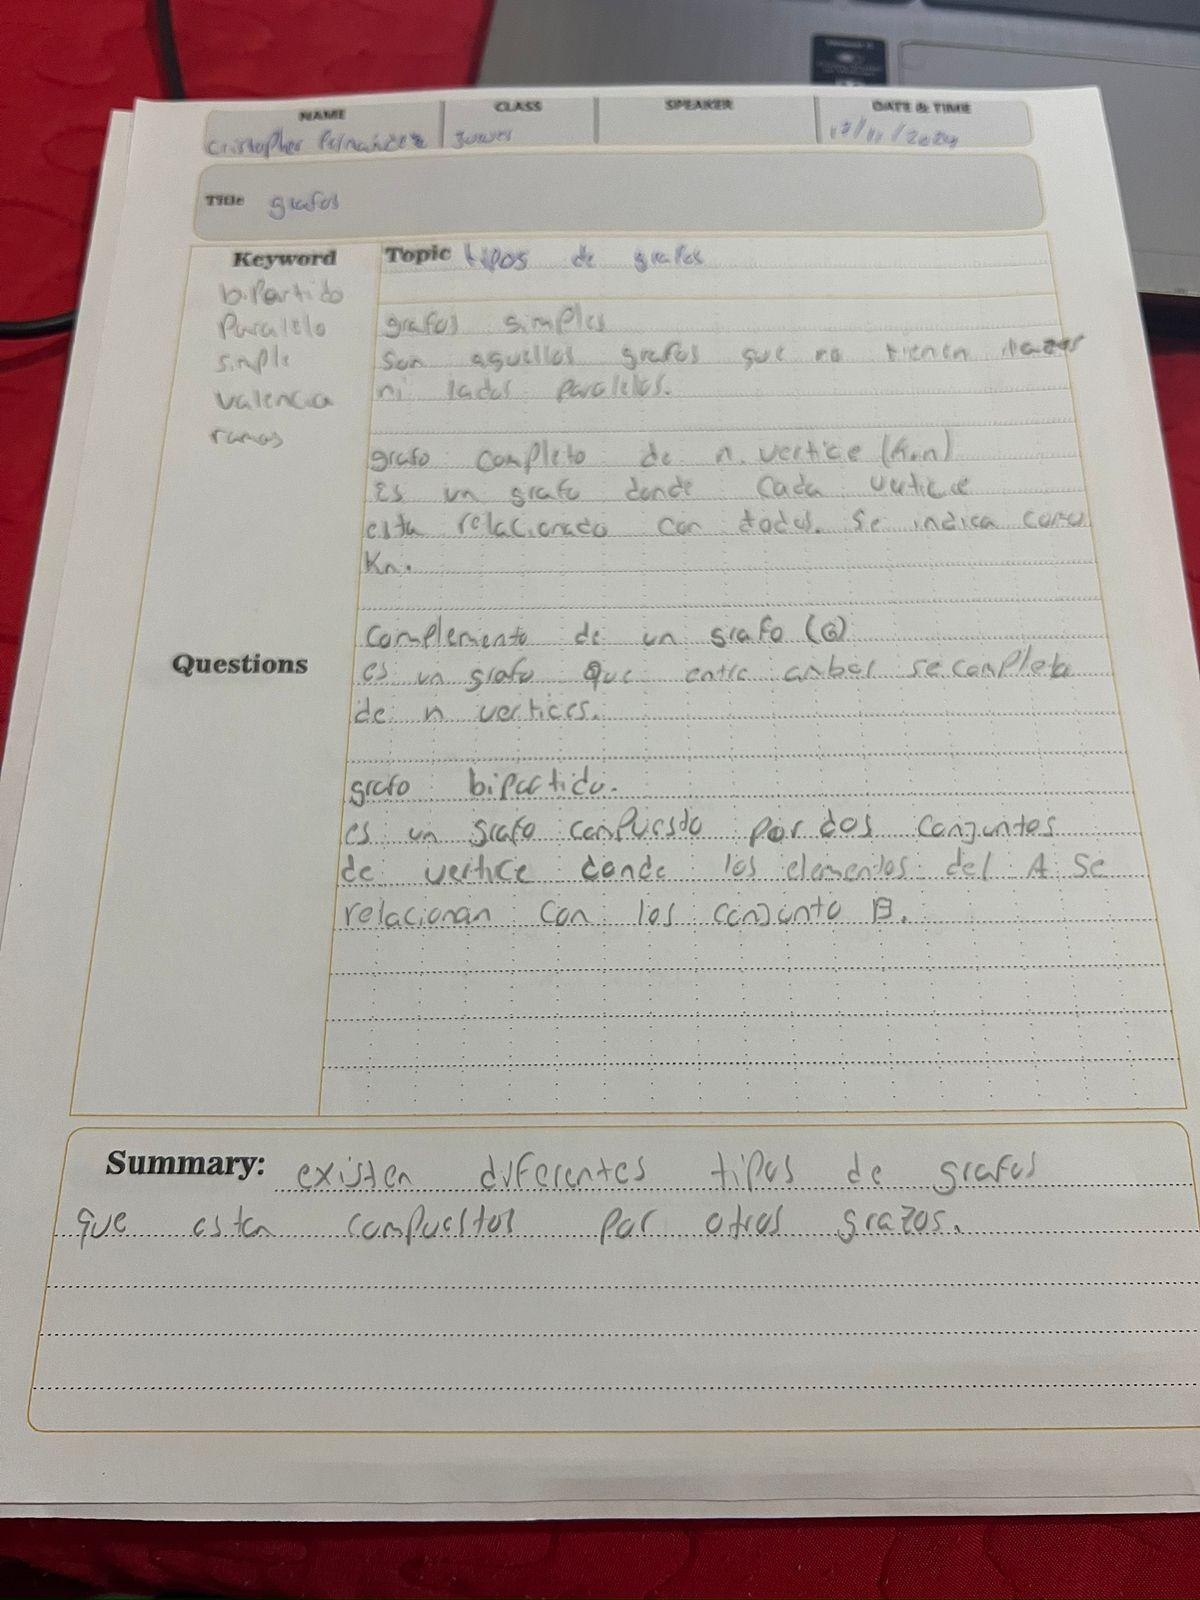 NAME CLASS SPEAKER DATE & TIME
Cristopher Fernández jueves /11/2024
Title grafos
Keyword
bipartido
Paralelo
simple
valencia
ramas
Topic tipos de grafos
grafos simples
son aquellos grafos que no tienen lazos
ni lados paralelos.
grafo completo de n. vertice (K.n)
Es un grafo donde cada vertice
esta relacionado con todos. Se indica como
Kn.
Complemento de un grafo (G)
es un grafo que entre ambos se completa
de n vertices.
grafo bipartido.
es un grafo compuesto por dos conjuntos
de vertice donde los elementos del A se
relacionan con los conjunto B.
Questions
Summary: existen diferentes tipos de grafos
que estan compuestos por otros grazos.